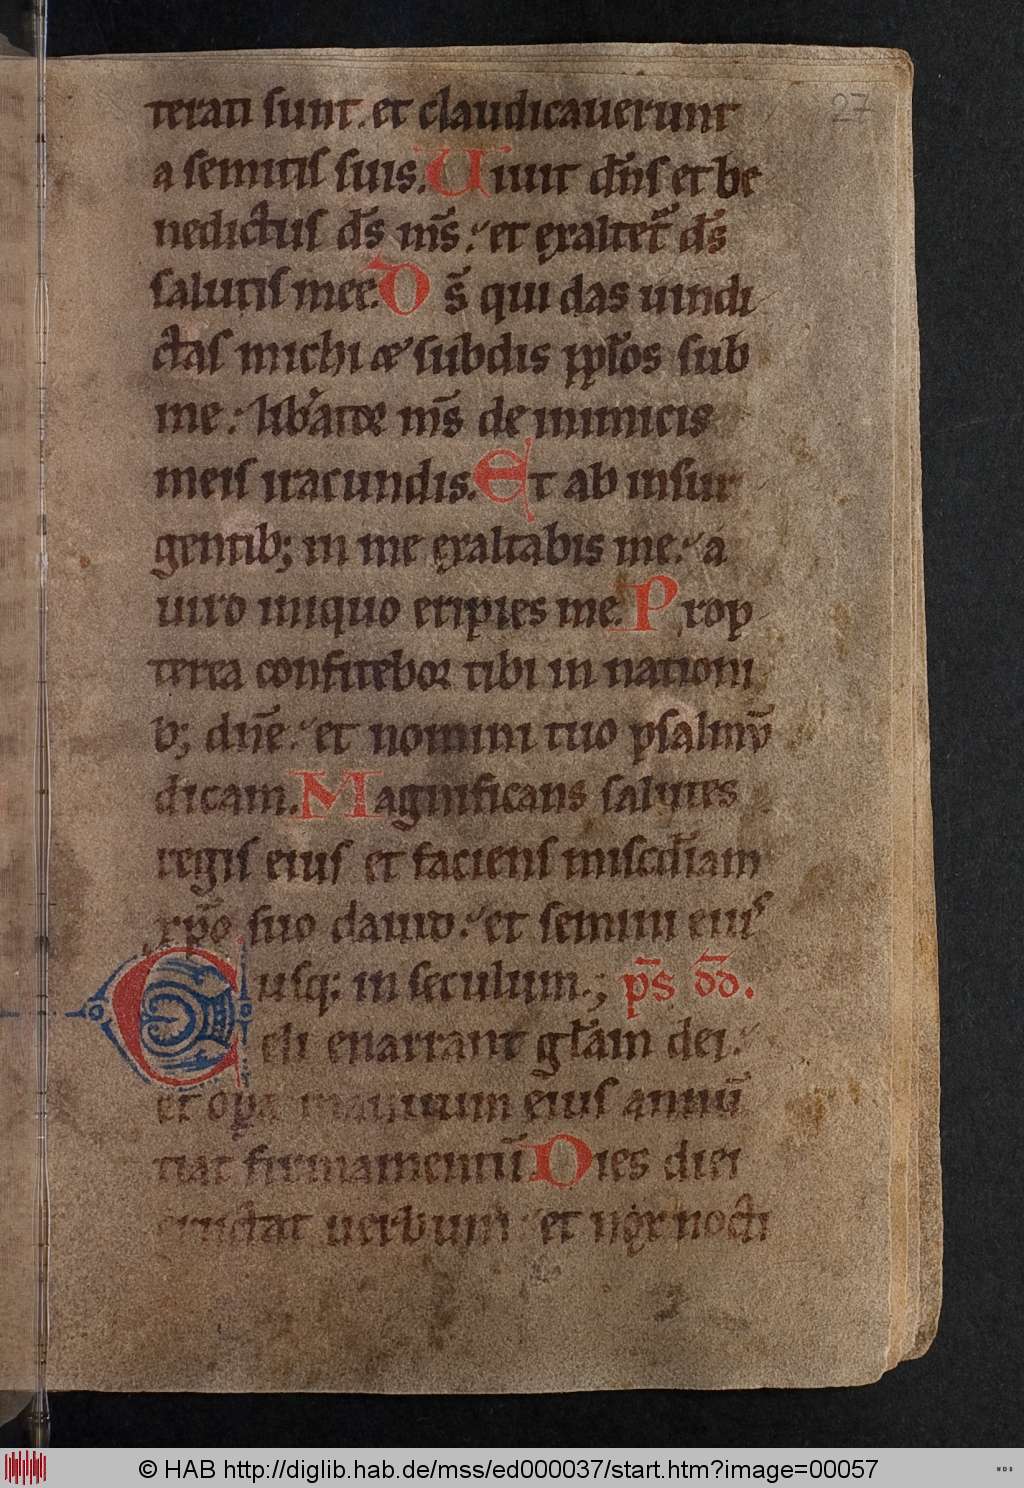 27
terati sunt. et claudicauerunt
a semitis suis. Uiuit dn̄s et be
nedictus ds̄ ms̄. et exaltet᷑ ds̄
salutis mee. D s̄ qui das uindi
ctas michi & subdis pp̄los sub
me: lib̄ator ms̄ de inimicis
meis iracundis. Et ab insur
gentib; in me exaltabis me: a
uiro iniquo eripies me. Prop
terea confitebor tibi in nationi
b; dn̄e. et nomini tuo psalmū
dicam. Magnificans salutes
regis eius et faciens miscd̄iam
xp̄o suo dauid. et semini eius
usq; in seculum.; ps̄ dd̄.
Celi enarrant gl̄am dei.
et opa manuum eius annū
tiat firmamentū. Dies diei
eructat uerbum et nox nocti
© HAB http://diglib.hab.de/mss/ed000037/start.htm?image=00057